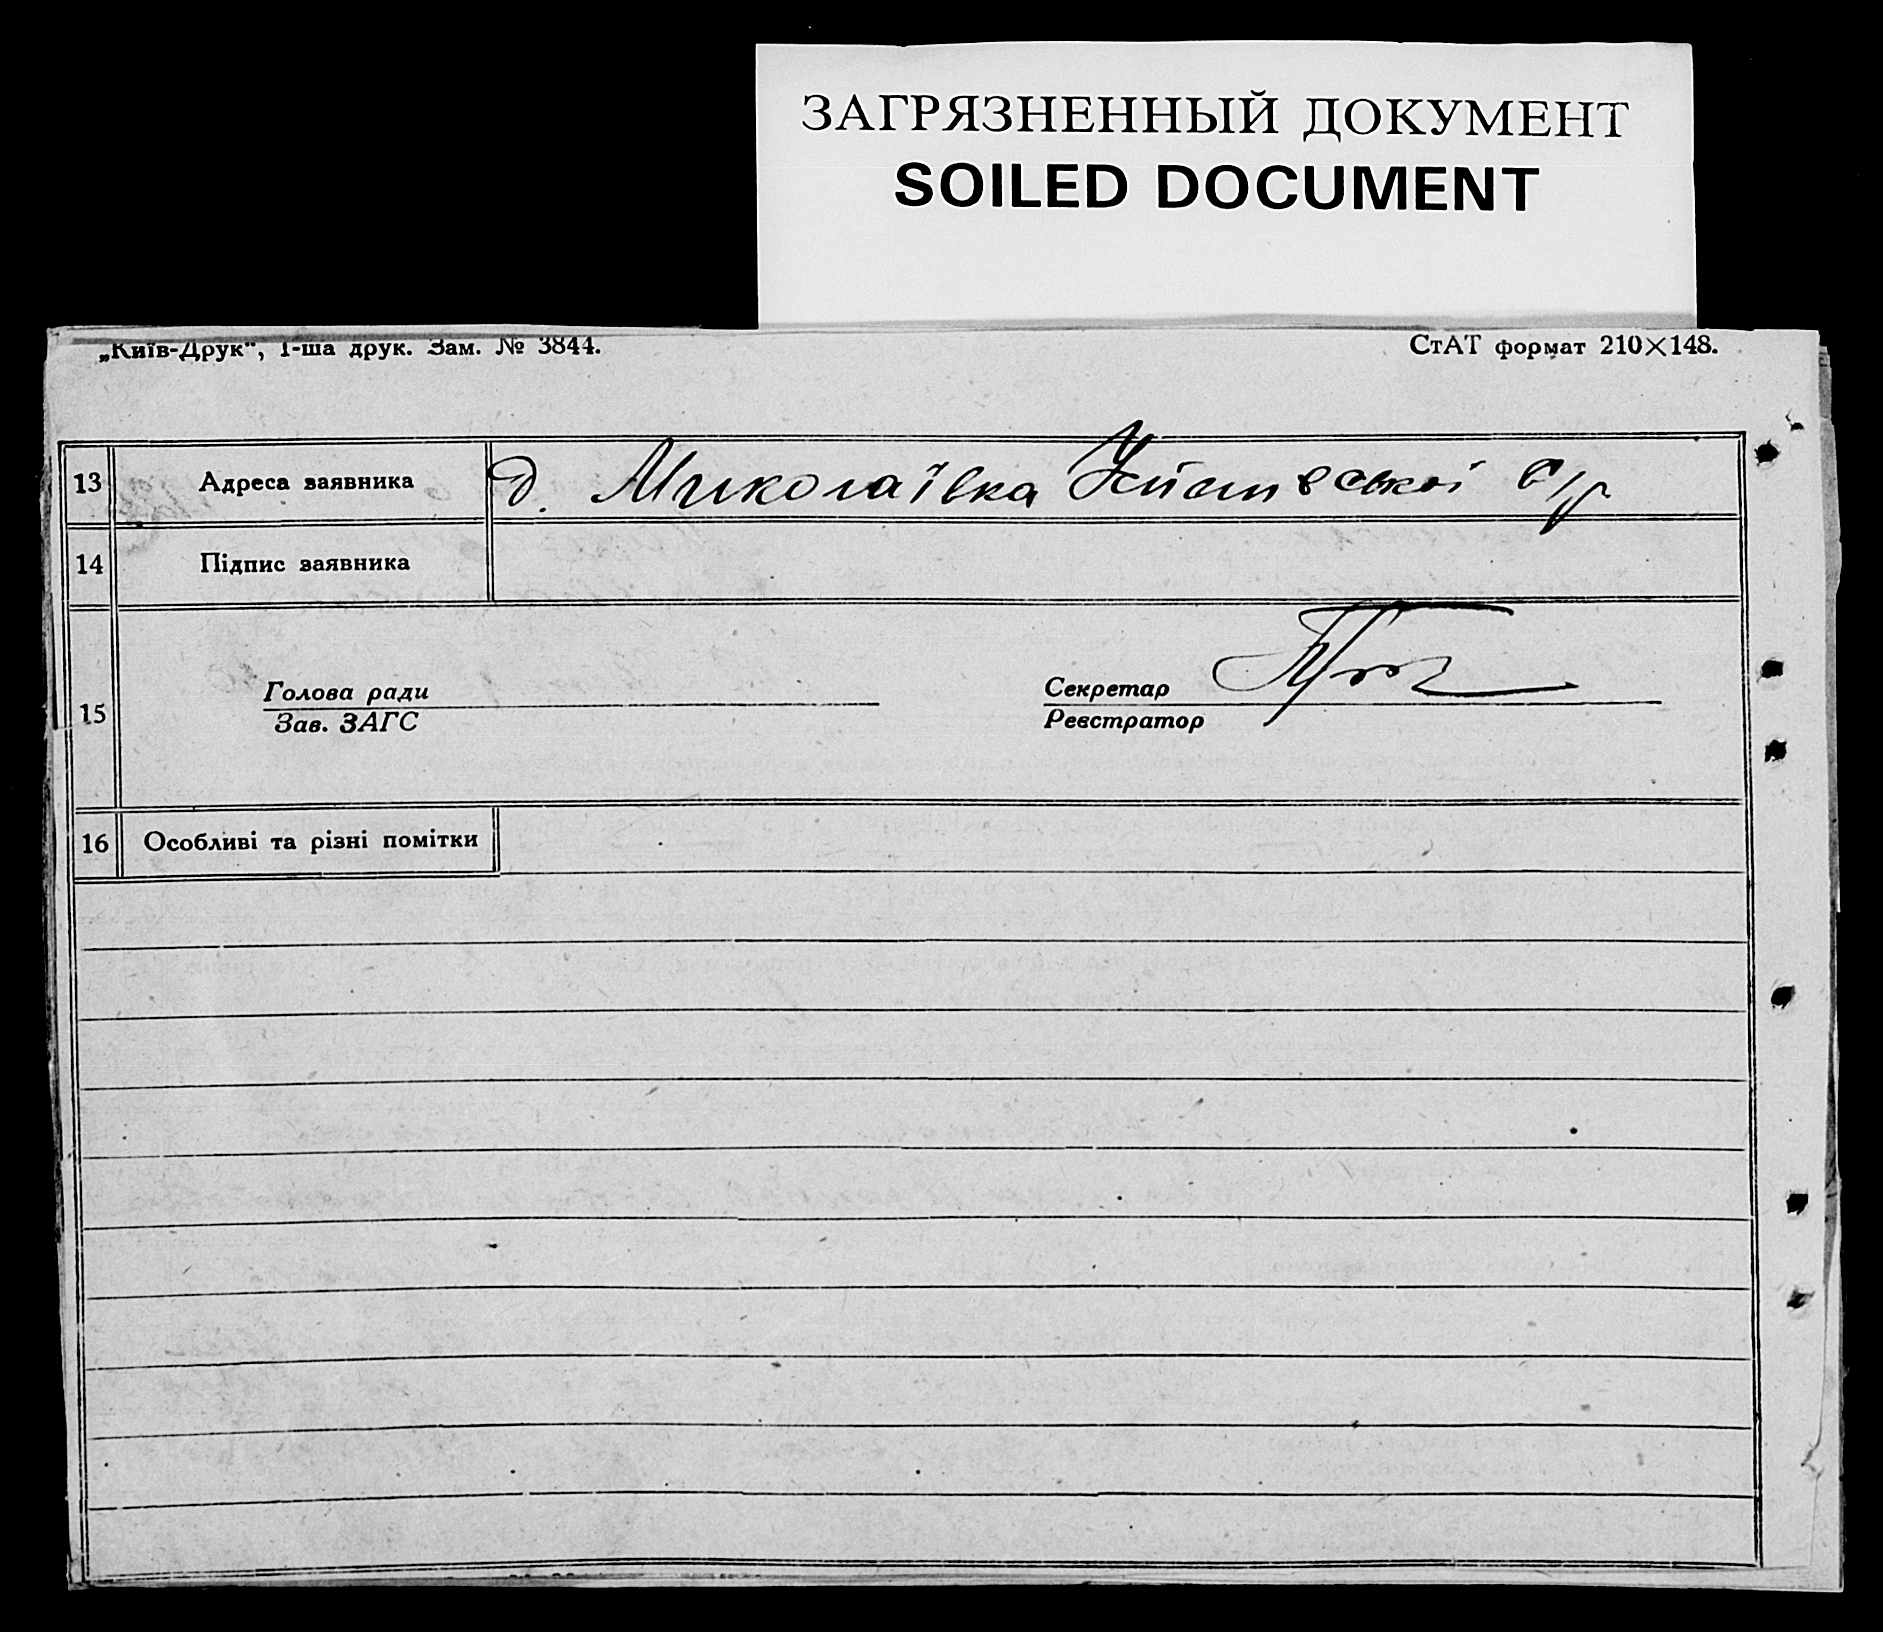 ЗАГРЯЗНЕННЫЙ ДОКУМЕНТ
SOILED DOCUMENT
„Київ-Друк", 1-ша друк. Зам. № 3844.
СтАТ формат 210×148.
13 Адреса заявника д. Миколаївка с/р
14 Підпис заявника
15 Голова ради
Зав. ЗАГС
Секретар
Реєстратор
16 Особливі та різні помітки